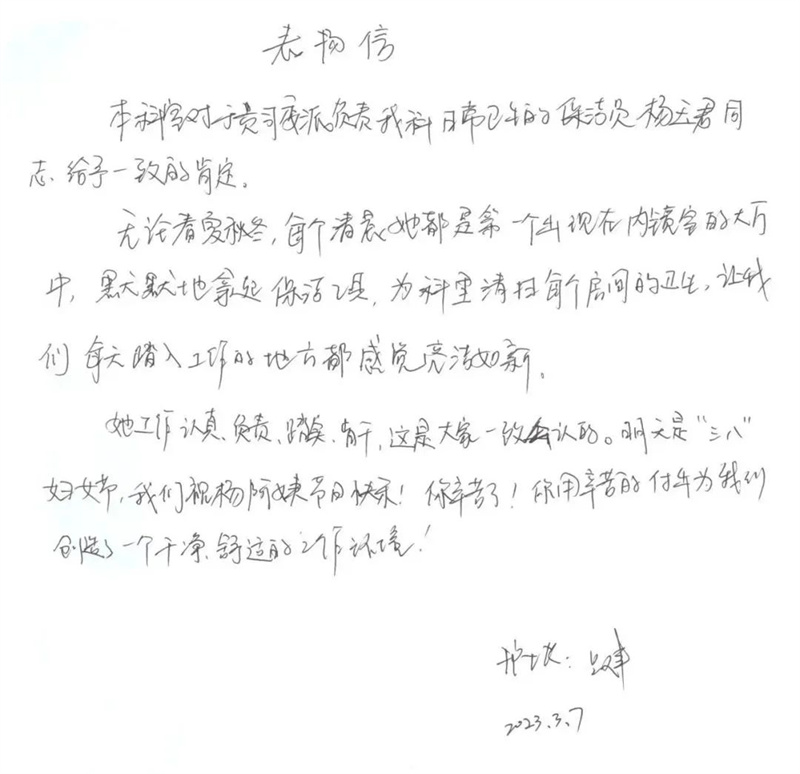 表扬信
本科室对于贵司委派负责我科日常卫生的保洁员杨玉君同
志、给予一致的肯定。
无论春夏秋冬，每个清晨她都是第一个出现在内镜室的大厅
中，默默地拿起保洁工具，为科里清扫每个房间的卫生，让我
们每天踏入工作的地方都感觉亮洁如新。
她工作认真、负责、踏实、肯干，这是大家一致公认的。明天是“三八”
妇女节，我们祝杨阿姨节日快乐！你辛苦了！你用辛苦的付出为我们
创造了一个干净、舒适的工作环境！
护士长：
2023.3.7